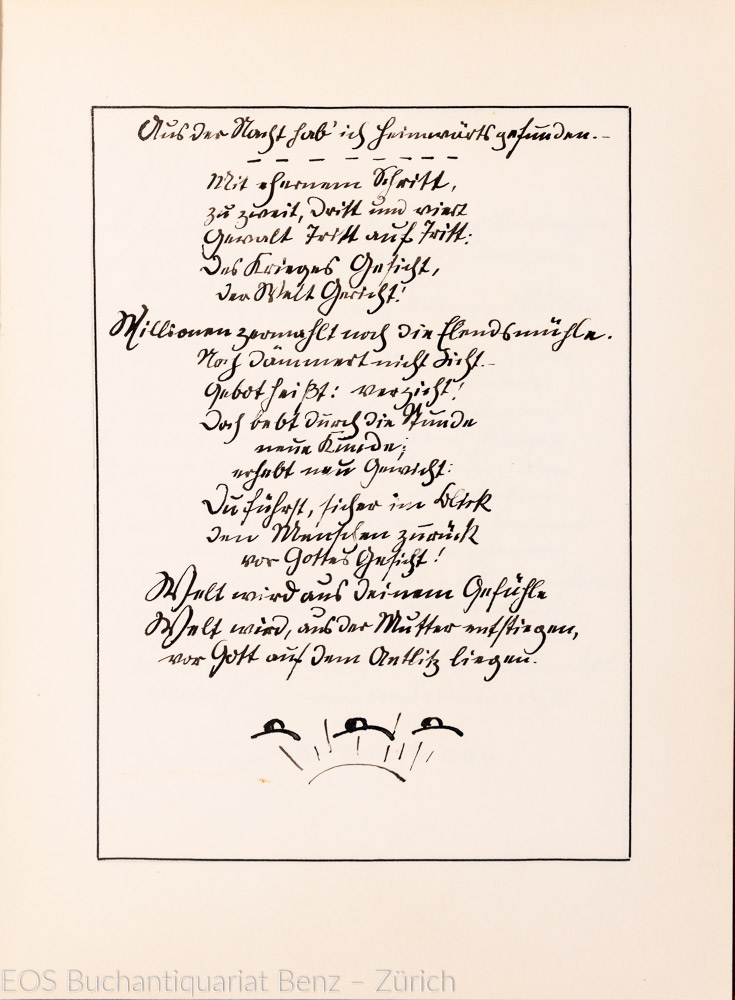 Aus der Nacht hab' ich heimwärts gefunden. –
– – – – – – –
Mit ehernem Schritt,
zu zweit, dritt und viert
Gewalt Tritt auf Tritt:
Des Krieges Gesicht,
der Welt Gericht!
Millionen zermahlt noch die Elendsmühle.
Noch dämmert nicht Licht. –
Gebot heißt: verzicht!
Doch bebt durch die Stunde
neue Kunde;
erhebt neu Gewicht:
Du führst, sicher im Blick
den Menschen zurück
vor Gottes Gesicht!
Welt wird aus deinem Gefühle
Welt wird, aus der Mutter entstiegen,
vor Gott auf dem Antlitz liegen.
EOS Buchantiquariat Benz – Zürich